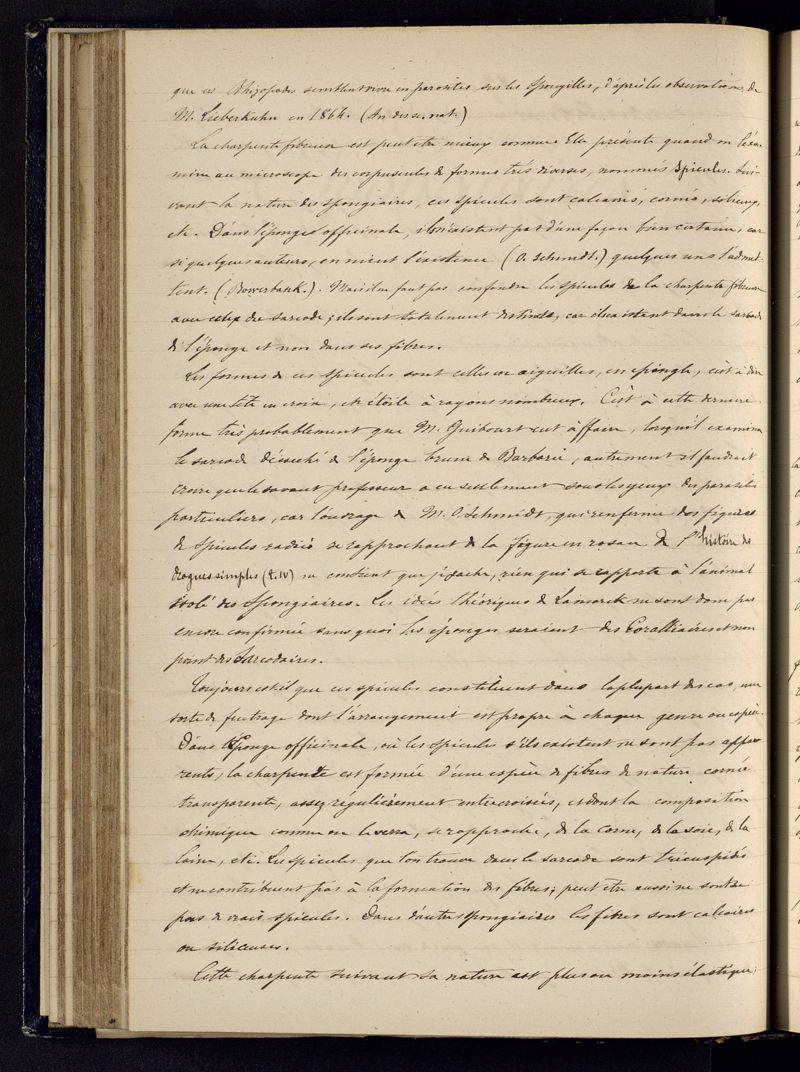 que ces Rhizopodes semblent vivre en parasites sur les Spongilles, d'après les observations de
M. Lieberkuhn en 1864. (An. des sc. nat.)
La charpente fibreuse est peut être mieux connue. Elle présente quand on l'éxa-
mine au microscope des corpuscules de formes très diverses, nommés Spicules. Sui-
vant la nature des spongiaires, ces spicules sont calcaires, cornés, siliceux,
etc. Dans l'éponge officinale, ils n'éxistent pas d'une façon bien certaine, car
si quelques auteurs, en nient l'éxistence (O. Schmidt.) quelques uns l'admet-
tent. (Bowerbank.). Mais il ne faut pas confondre les spicules de la charpente fibreuse
avec ceux du sarcode; ils sont totalement distincts, car il en existent dans le sarcode
de l'éponge et non dans ses fibres.
Les formes de ces spicules sont celles en aiguilles, en épingle, c'est à dire
avec une tête en croix, et étoile à rayons nombreux. C'est à cette dernière
forme très probablement que M. Guibourt eut affaire, lorsqu'il examina
le sarcode désséché de l'éponge brune de Barbarie, autrement il faudrait
croire que le savant professeur a eu seulement sous les yeux des parasites
particuliers, car l'ouvrage de M. O. Schmidt, qui renferme des figures
de spicules radiés se rapprochant de la figure en rosace de l'histoire des
drogues simples (t. IV) ne contient que je sache, rien qui se rapporte à l'animal
isolé des Spongiaires. Les idées théoriques de Lamarck ne sont donc pas
encore confirmées sans quoi les éponges seraient des Coralliaires et non
point des Sarcodaires.
Toujours est-il que ces spicules constituent dans la plupart des cas, une
sorte de feutrage dont l'arrangement est propre à chaque genre ou espèce.
Dans l'Eponge officinale, où les spicules s'ils existent ne sont pas appa-
rents, la charpente est formée d'une espèce de fibres de nature cornée
transparente, assez régulièrement entrecroisées, et dont la composition
chimique comme on le verra, se rapproche, de la corne, de la soie, de la
laine, etc. Les spicules que l'on trouve dans le sarcode sont tricuspidés
et ne contribuent pas à la formation des fibres; peut être aussi ne sont ce
pas de vrais spicules. Dans d'autres spongiaires les fibres sont calcaires
ou siliceuses.
Cette charpente suivant sa nature est plus ou moins élastique;